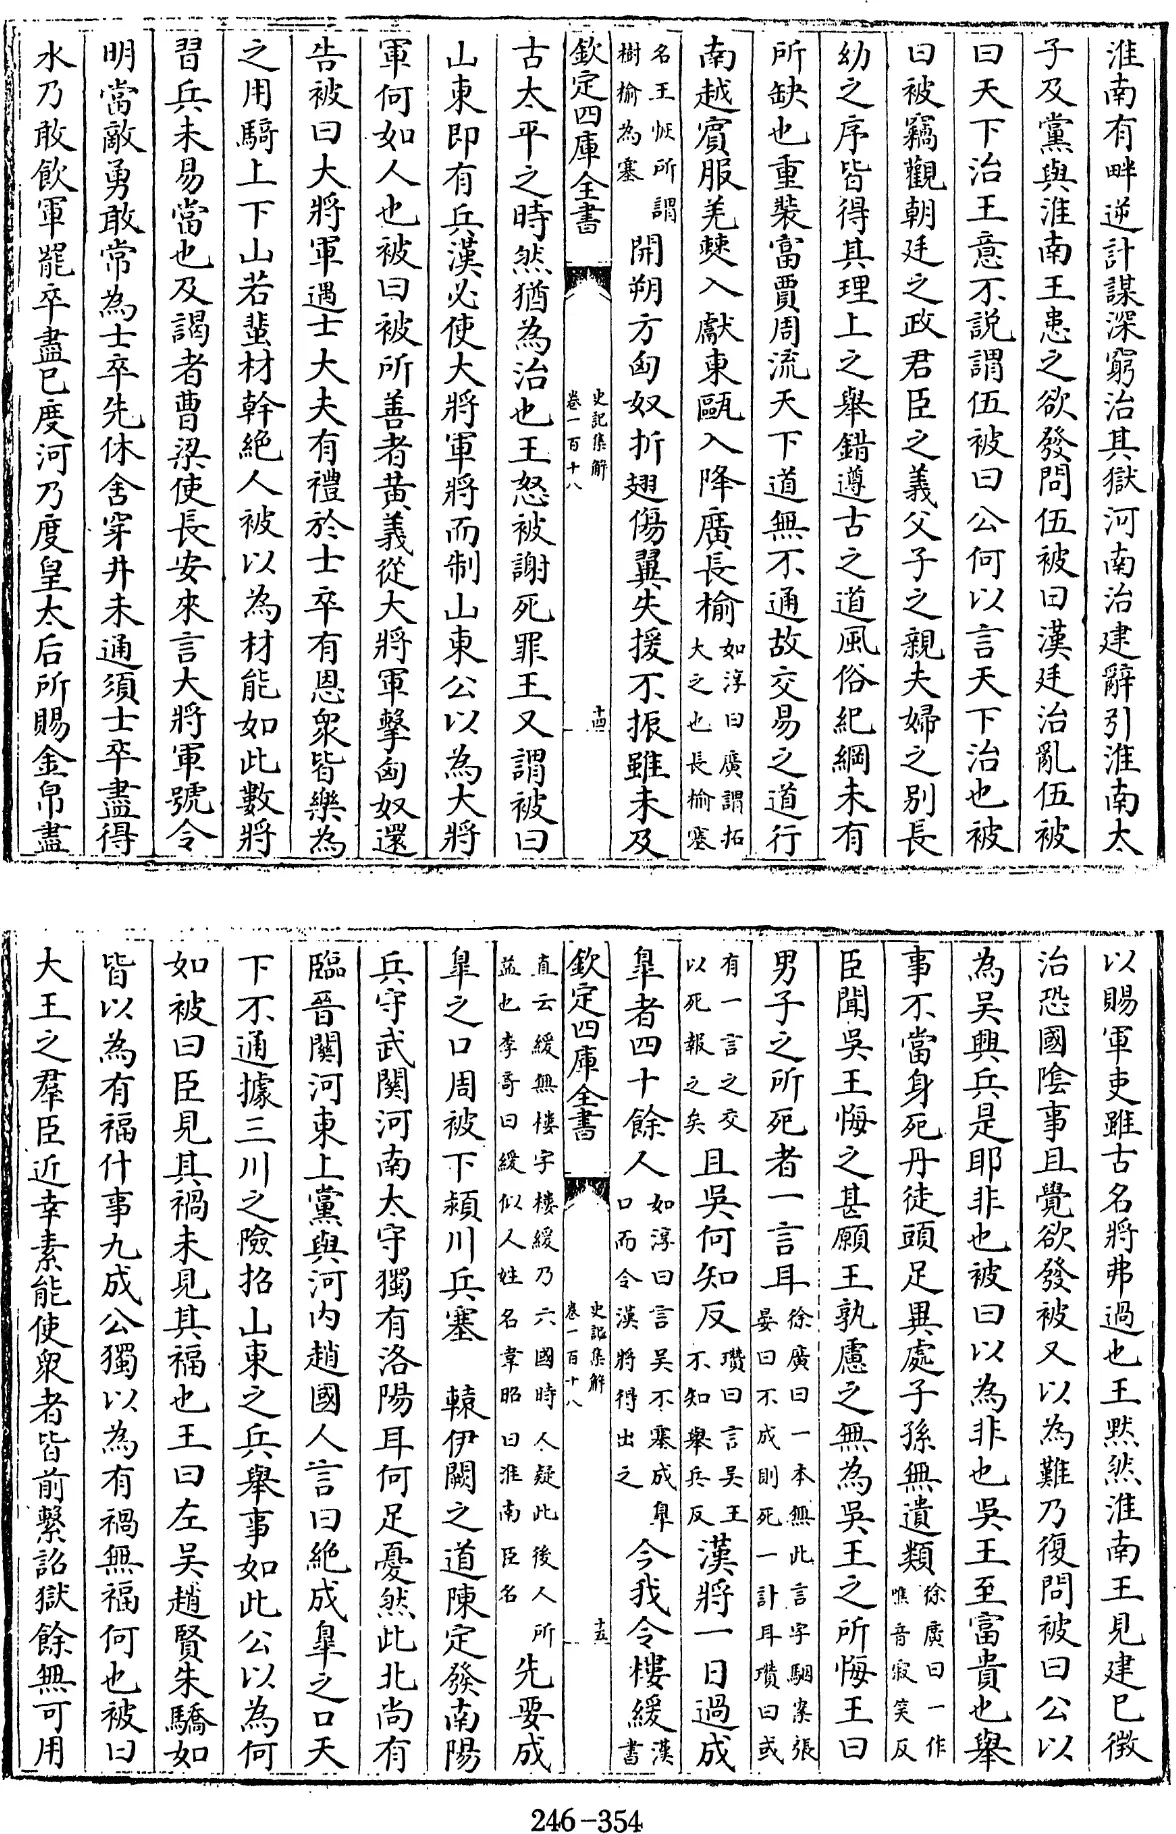 淮南有畔逆計謀深窮治其獄河南治建辭引淮南太
子及黨與淮南王患之欲發問伍被曰漢廷治亂伍被
曰天下治王意不説謂伍被曰公何以言天下治也被
曰被竊觀朝廷之政君臣之義父子之親夫婦之别長
幼之序皆得其理上之舉錯遵古之道風俗紀綱未有
所缺也重裝富賈周流天下道無不通故交易之道行
南越賓服羌僰入獻東甌入降廣長榆如淳曰廣謂拓大之也長榆塞
名王恢所謂樹榆為塞開朔方匈奴折翅傷翼失援不振雖未及
欽定四庫全書 史記集解卷一百十八 十四
古太平之時然猶為治也王怒被謝死罪王又謂被曰
山東即有兵漢必使大將軍將而制山東公以為大將
軍何如人也被曰被所善者黄義從大將軍擊匈奴還
告被曰大將軍遇士大夫有禮於士卒有恩衆皆樂為
之用騎上下山若蜚材幹絶人被以為材能如此數將
習兵未易當也及謁者曹梁使長安來言大將軍號令
明當敵勇敢常為士卒先休舍穿井未通須士卒盡得
水乃敢飲軍罷卒盡已度河乃度皇太后所賜金帛盡
以賜軍吏雖古名將弗過也王黙然淮南王見建已徵
治恐國隂事且覺欲發被又以為難乃復問被曰公以
為吴興兵是耶非也被曰以為非也吴王至富貴也舉
事不當身死丹徒頭足異處子孫無遺類徐廣曰一作噍音寂笑反
臣聞吳王悔之甚願王孰慮之無為吳王之所悔王曰
男子之所死者一言耳徐廣曰一本無此言字駰案張晏曰不成則死一計耳瓚曰或
有一言之交以死報之矣且吳何知反瓚曰言吳王不知舉兵反漢將一日過成
臯者四十餘人如淳曰言吴不塞成臯口而令漢將得出之今我令樓緩漢書
欽定四庫全書 史記集解卷一百十八 十五
直云緩無樓字樓緩乃六國時人疑此後人所益也李奇曰緩似人姓名韋昭曰淮南臣名先要成
臯之口周被下潁川兵塞轘伊闕之道陳定發南陽
兵守武關河南太守獨有洛陽耳何足憂然此北尚有
臨晉關河東上黨與河内趙國人言曰絶成臯之口天
下不通據三川之險招山東之兵舉事如此公以為何
如被曰臣見其禍未見其福也王曰左吴趙賢朱驕如
皆以為有福什事九成公獨以為有禍無福何也被曰
大王之羣臣近幸素能使衆者皆前繫詔獄餘無可用
246-354